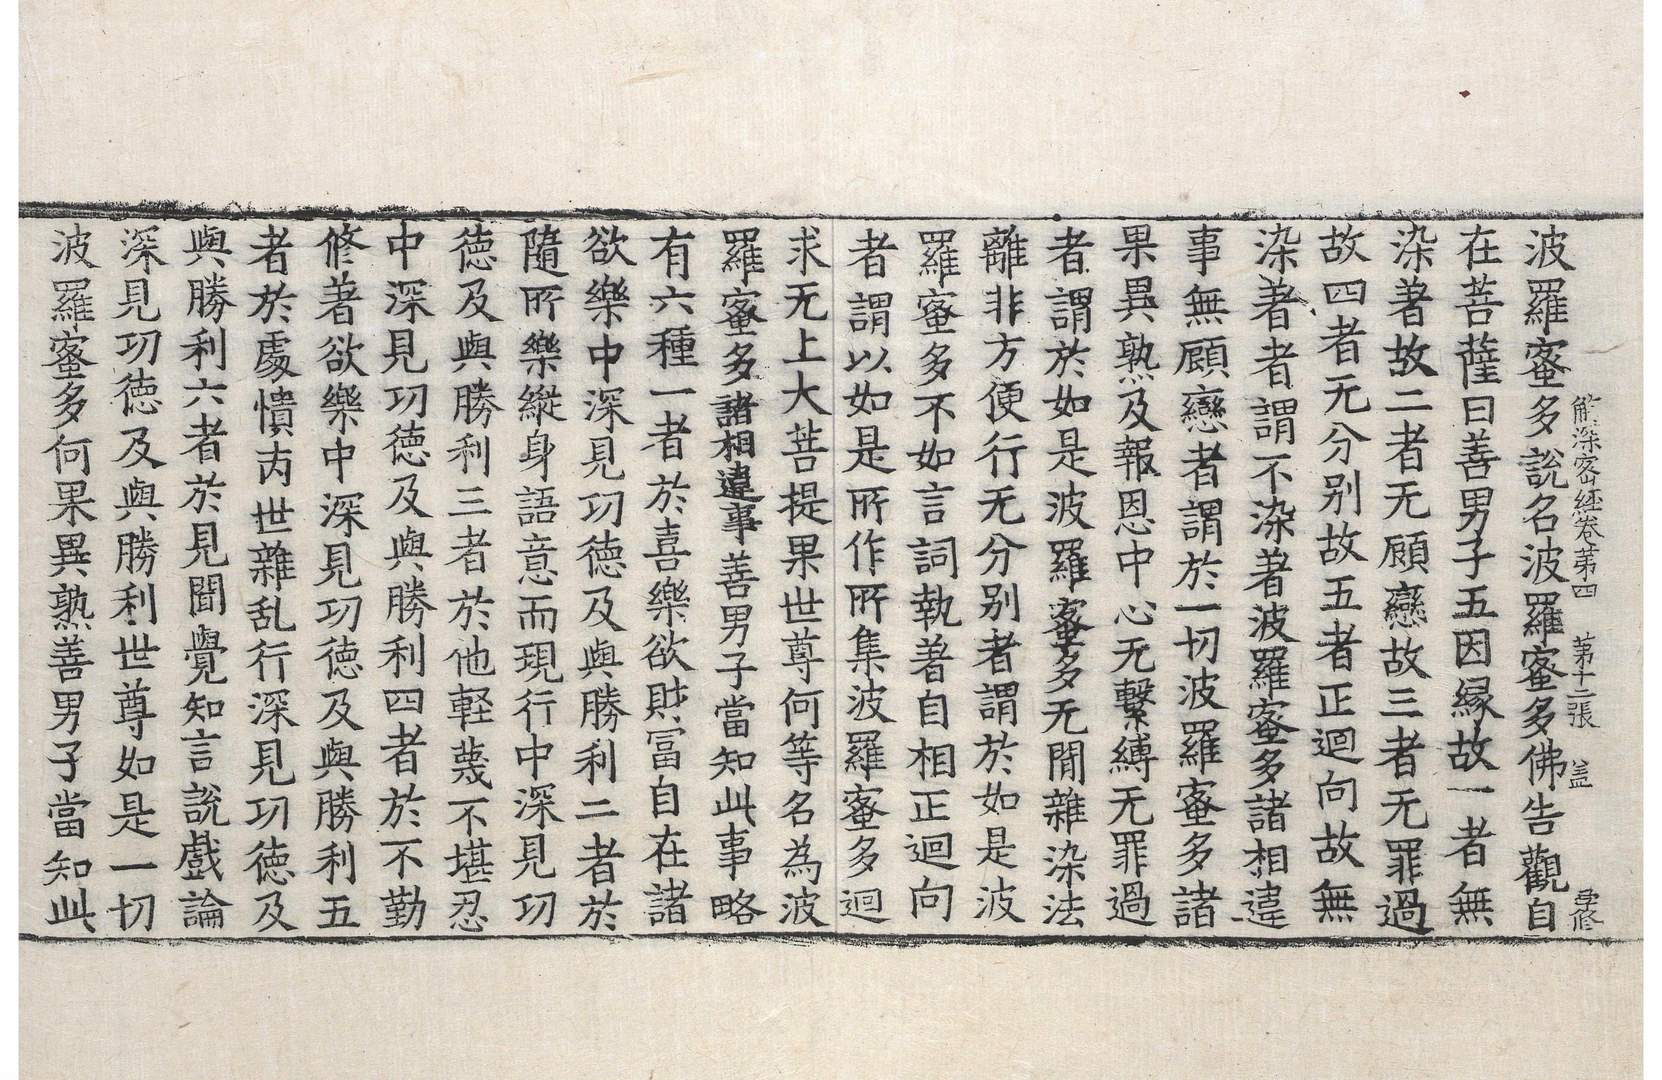 解深密經卷第四 第十二張 盖
波羅蜜多說名波羅蜜多佛告觀自
在菩薩曰善男子五因縁故一者無
染著故二者无顧戀故三者无罪過
故四者无分别故五者正迴向故無
染著者謂不染著波羅蜜多諸相違
事無顧戀者謂於一切波羅蜜多諸
果異熟及報恩中心无繫縛无罪過
者謂於如是波羅蜜多无閒雜染法
離非方便行无分别者謂於如是波
羅蜜多不如言詞執著自相正迴向
者謂以如是所作所集波羅蜜多迴
求无上大菩提果世尊何等名為波
羅蜜多諸相違事善男子當知此事略
有六種一者於喜樂欲財冨自在諸
欲樂中深見功德及與勝利二者於
隨所樂縱身語意而現行中深見功
德及與勝利三者於他輕蔑不堪忍
中深見功德及與勝利四者於不勤
修著欲樂中深見功德及與勝利五
者於處憒丙世雜乱行深見功德及
與勝利六者於見聞覺知言說戲論
深見功德及與勝利世尊如是一切
波羅蜜多何果異熟善男子當知此